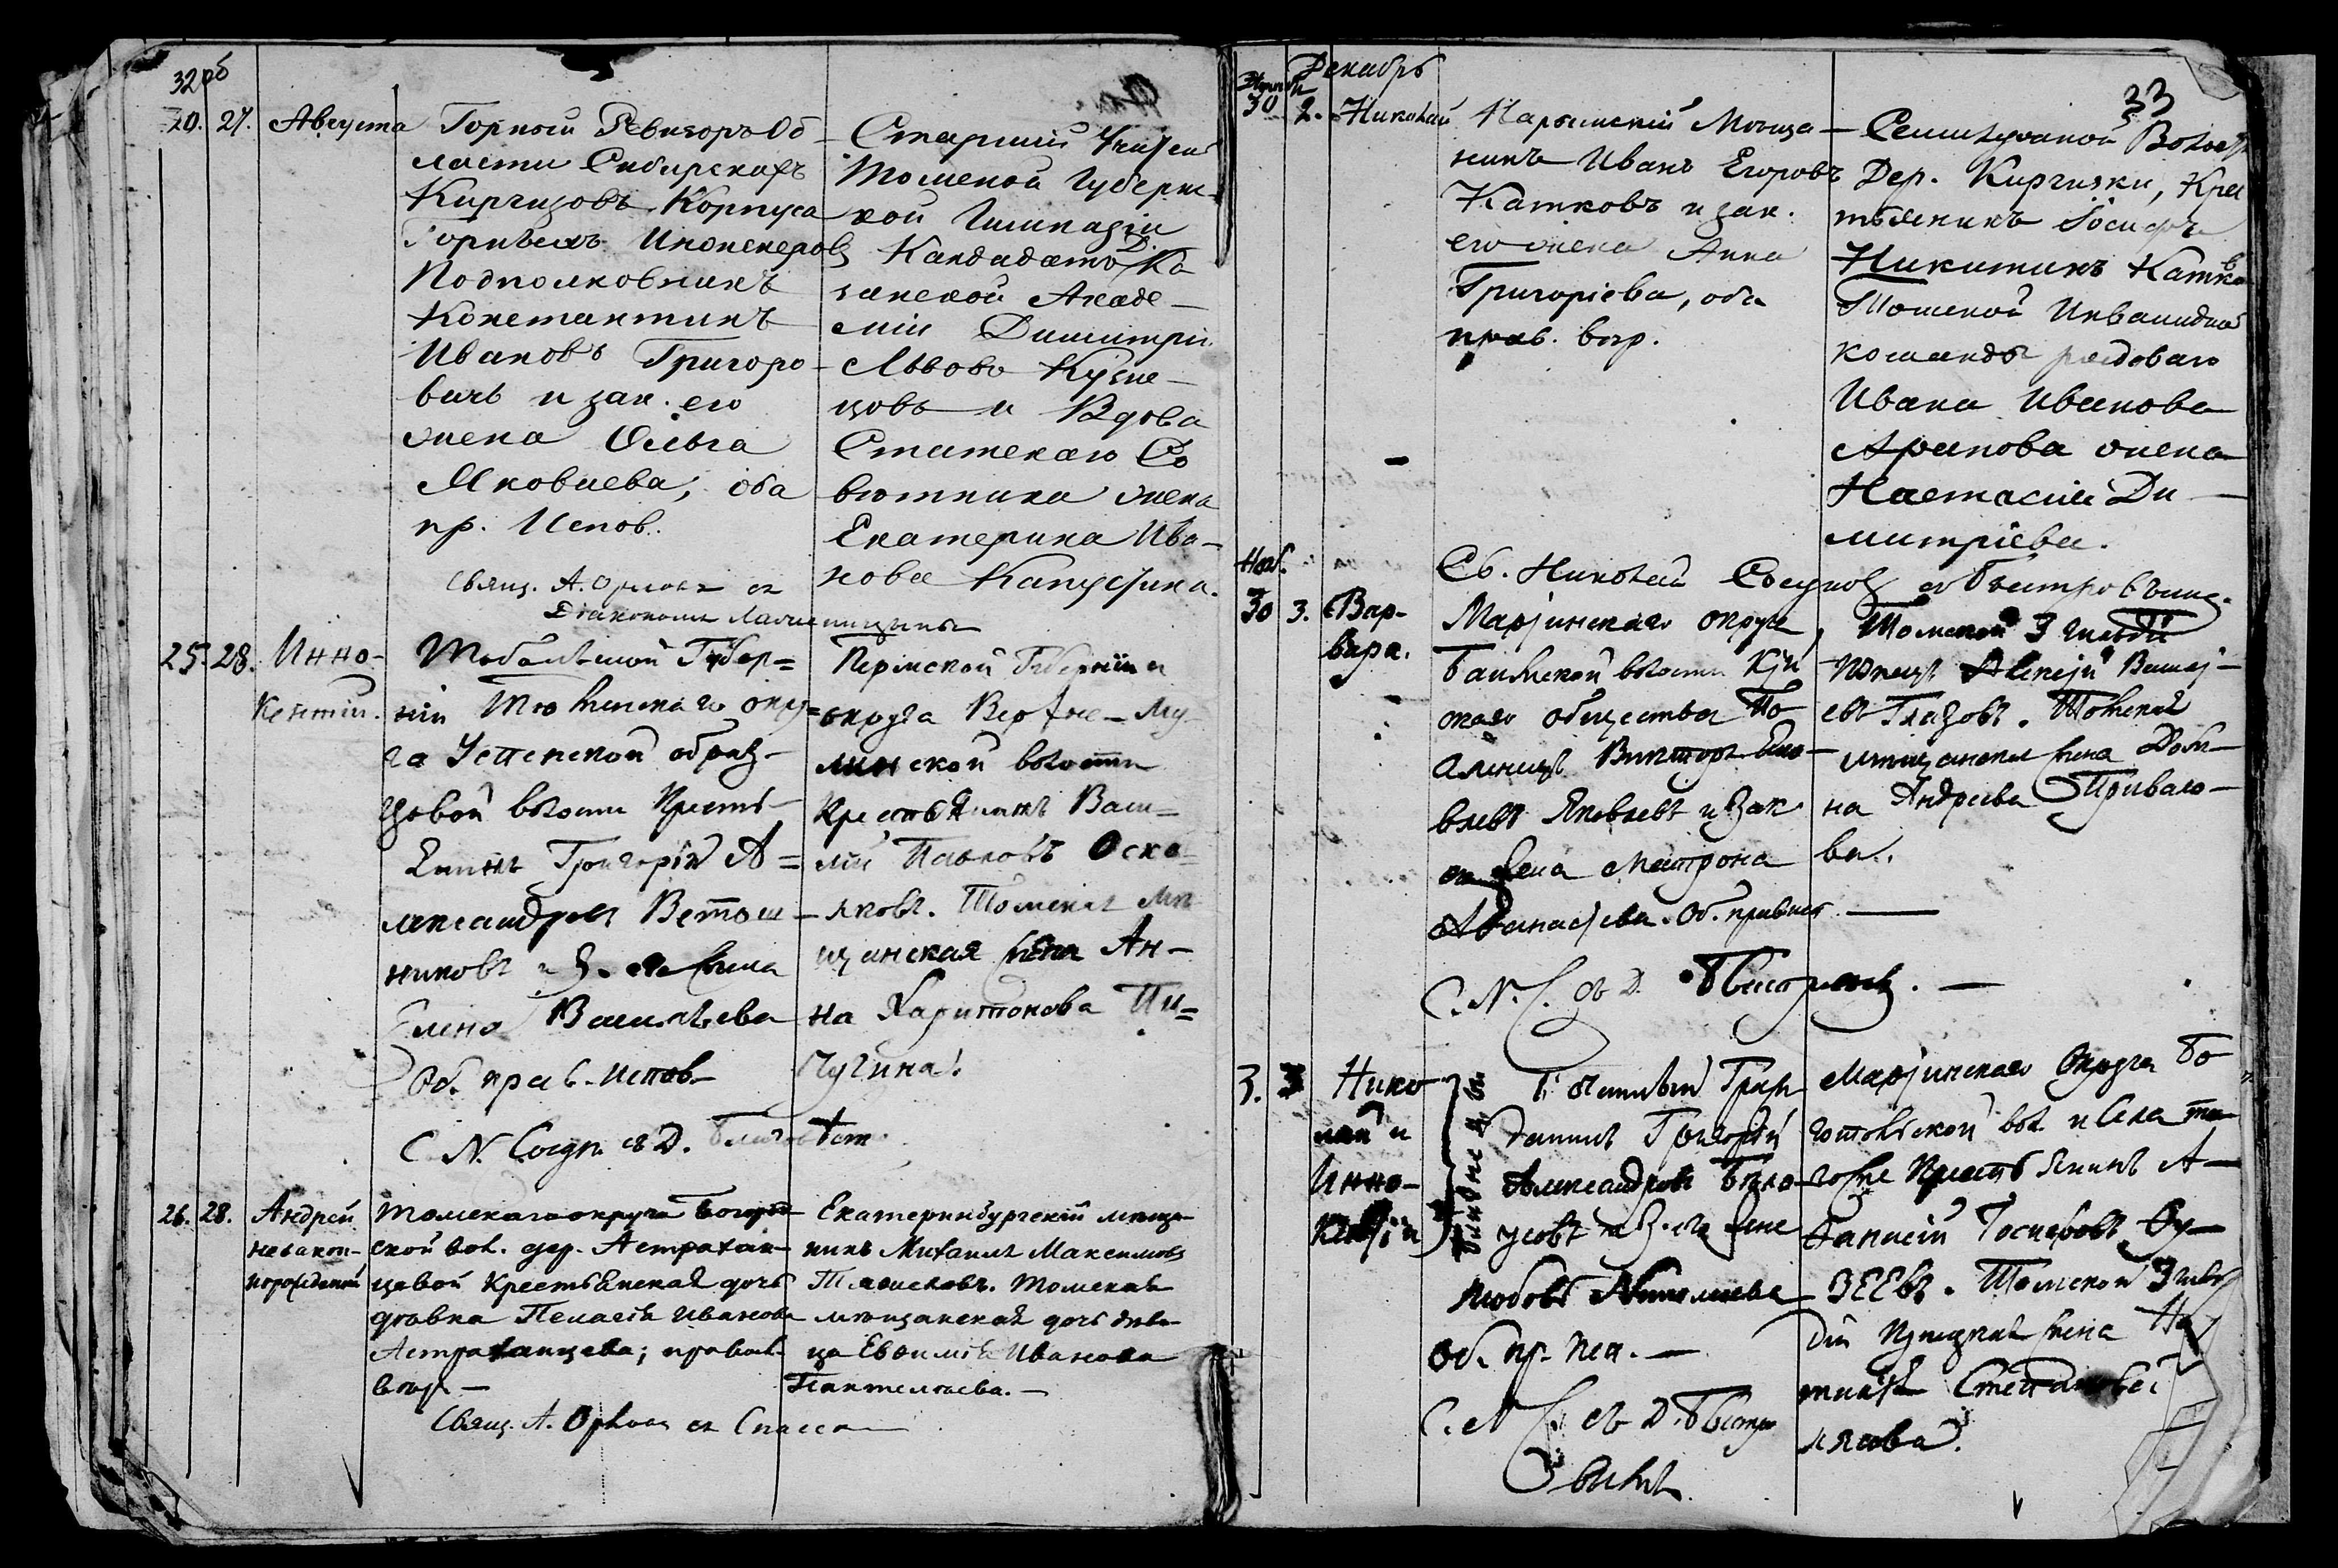 32 об
20. 27. Августа
Горный Ревизоръ Об
ласти Сибирскихъ
Киргизовъ Корпуса
Горныхъ Инженеровъ
Подполковникъ
Константинъ
Ивановъ Григоро-
вичь и зак. его
жена Ольга
Яковлева, оба
пр. Испов.
Старшій Учитель
Томской Губернс-
кой Гимназіи
Кандидатъ Ка
занской Акаде-
міи Димитрій
Львовъ Кузне-
цовъ и Вдова
Статскаго Со
вѣтника жена
Екатерина Ива-
нова Капустина.
Свящ. А. Орловъ съ
Діакономъ
25. 28. Инно-
кентій.
Тобольской Губер=
ніи Тюкинскаго окру=
га Успенской образ-
цовой волости Кресть-
янинъ Григорій А=
лександровъ Ветош-
никовъ и З. его жена
Елена Васильева
Об. прав. испов.
Пермской Губерніи и
округа Верхне-Му
линской волости
Крестьянинъ Васи=
лій Павловъ Оско=
лковъ. Томская Мѣ
щанская жена Ан-
на Харитонова Пи=
чугина.
С. N. Сосун. съ Д.
26. 28. Андрей
незакон-
норожденный
Томскаго округа Богород
ской вол. дер. Астрахан-
цевой Крестьянская дочь
дѣвка Пелагія Иванова
Астраханцева; правос.
вѣр.-
Екатеринбургскій мѣща-
нинъ Михаилъ Максимовъ
Томская
мѣщанская дочь дѣви-
ца Евфимія Иванова
Пантелѣева.-
Свящ. А. Орловъ съ Спасск
Декабрь
33
30 2. Николай
Нарымскій Мѣща-
нинъ Иванъ Егоровъ
Катковъ и зак.
его жена Анна
Григоріева, оба
прав. вѣр.
Семилужной Волост
Дер. Киргизки, Крес
тьянинъ Іосифъ
Никитинъ Катков
Томской Инвалидной
команды рядоваго
Ивана Иванова
Арапова жена
Настасія Ди-
митріева.
Св. Николай Сосунов
Нояб.
30 3. Вар-
вара.
Маріинскаго округа,
Баимской волости
скаго общества По
селенецъ Викторъ Яко-
влевъ Яковлевъ и Зак
он жена Матрона
Афанасьева. Об. правосл.
Томской 3 гильдіи
Купецъ Алексѣй Василь-
евъ Глазовъ. Томская
мѣщанская жена Дом-
на Андреева Привало-
ва.
С. N. С. съ Д.
3. 3 Нико
лай и
Инно-
кентій
близнецы
Почетный Граж
данинъ Григорій
Александровъ Бѣло-
усовъ и З. его жена
Любовь Николаева
Об. пр. исп.-
Маріинскаго Округа Бо
готольской вол. и села то
гоже Крестьянинъ А-
фанасій Іосифовъ Ов-
зеевъ. Томской 3 гиль
діи купецкая жена
С. N. С. съ Д. Быстр